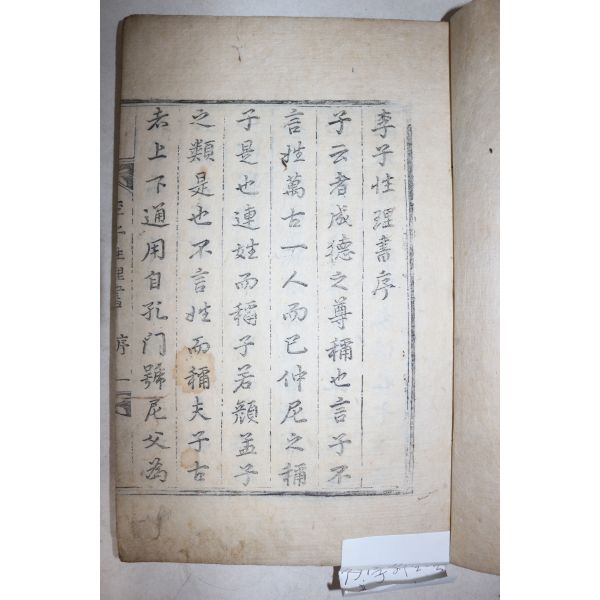 李子性理書序
子云者成德之尊稱也言子不
言姓萬古一人而已仲尼之稱
子是也連姓而稱子若顏孟子
之類是也不言姓而稱夫子古
者上下通用自孔门號尼父爲
李子性理書 序 一